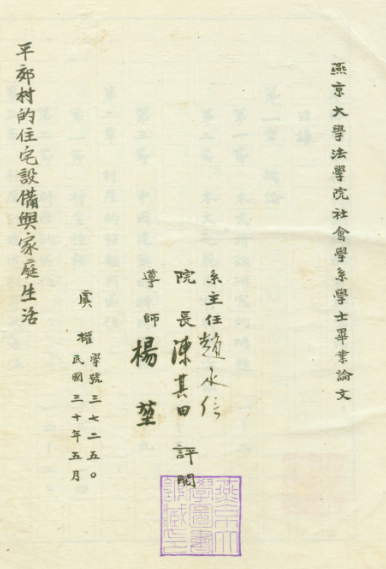 燕京大學法學院社會學系學士畢業論文
系主任趙承信
院長陳其田 評閱
導師楊堃
虞權 學號三七二五〇
民國三十年五月
平郊村的住宅設備與家庭生活
燕京大
學圖書
館藏之